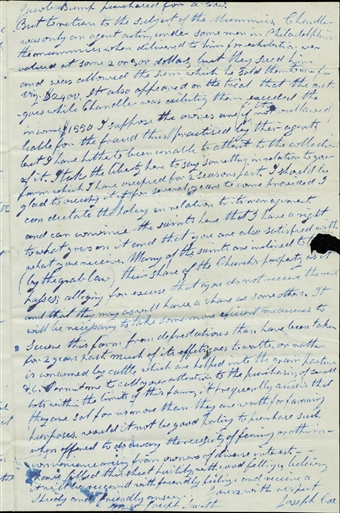 Jacob Bump purchased for a tax.
But to return to the subject of the Mummies, Chandler
was only an agent acting under some men in Philadelphia
the mummies when delivered to him for exhibition was
valued at some 2 or 300 dollars, but they sued him
and was allowed the sum which he sold them for
$2400. It also appeared on the trial that the
while Chandler was exhibiting them exceeded the
income $1550 I suppose the owners are
liable for the fraud thus practised by their agents
but I have hitherto been unable to attend to the collection
of it. I take the liberty here to say something in relation to your
farm which I have occupied for 2 seasons past. I should be
glad to occupy it for several years to come provided I
can dictate the policy in relation to its management
and can convince the saints here that I have a right
to what grows on it and that you are also satisfied with
what you receive. Many of the saints are inclined to
(by the grab law) their share of the Church property, as it
alleging for excuse that you do not receive the
and that they may as well have a share as some others. It
will be necessary to take some more efficient measures to
secure this farm from depredations than have been taken
for 2 years past most of its effects goes to waste, or
is consumed by cattle, which are helped into the grain pasture
&c. Permit me to call your attention to the purchasing of small
lots within the limits of this farm, it frequently arises that
they are sold for no more than they are worth for farming
purposes. would it not be good policy to purchase such
when offered to do away the necessity of fencing or other in-
convenience arising from owners of diverse interest
I have filled this sheet hastily with and feelings believing
it will be received with friendly feelings and receive a
speedy and friendly answer.
Yours with respect
Joseph Smith
Joseph Coe